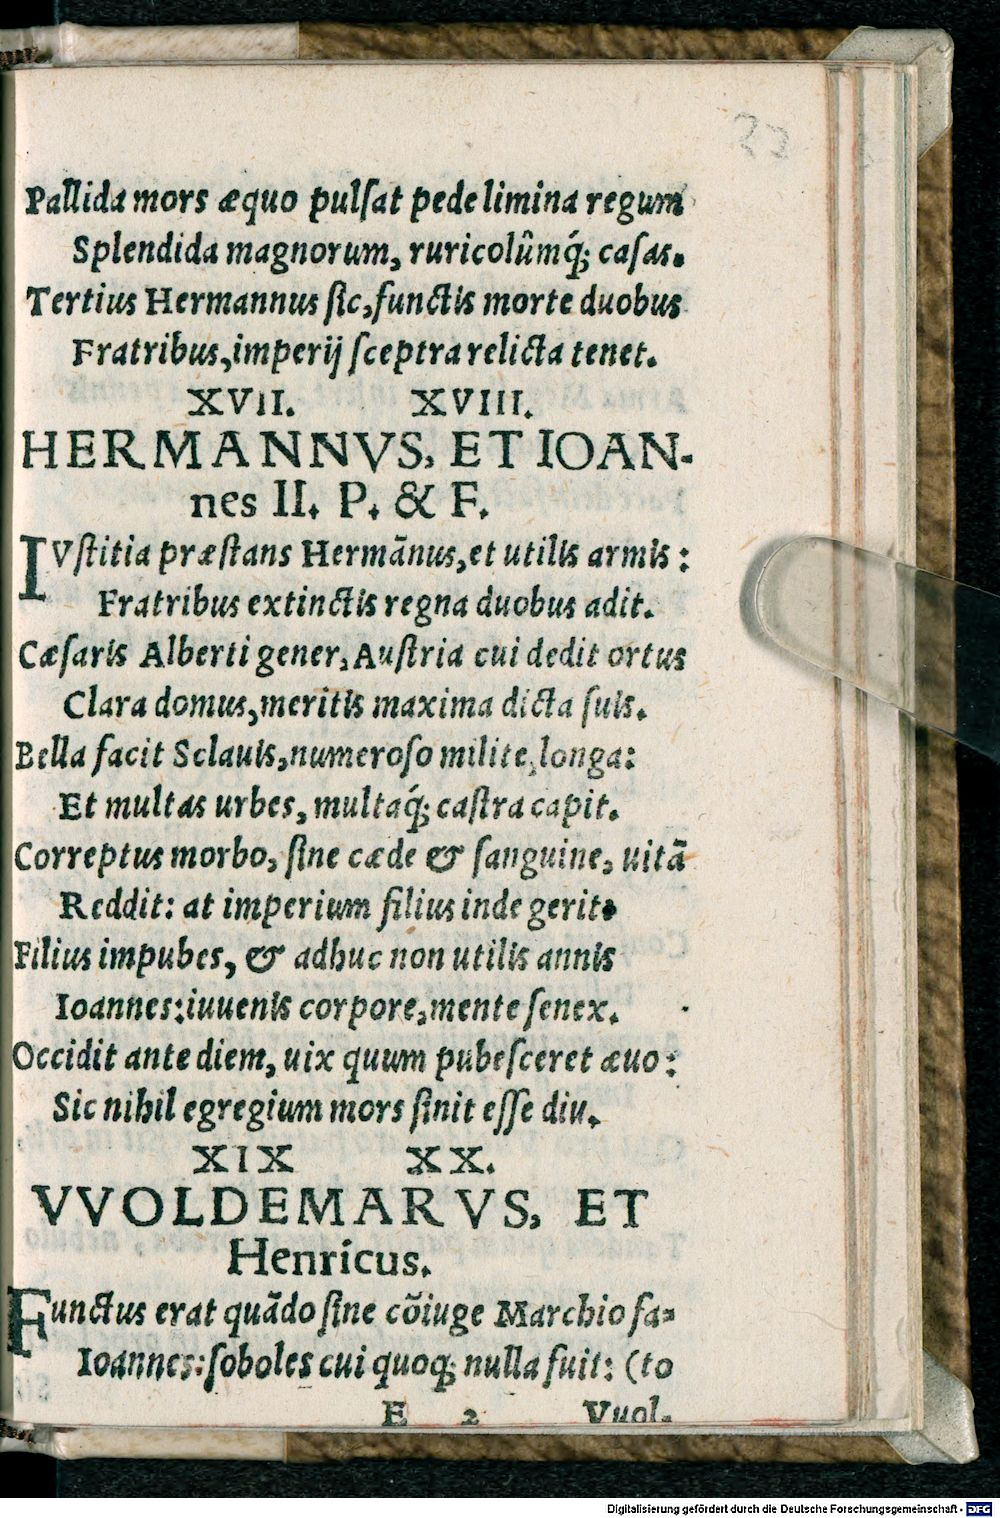 Pallida mors æquo pulſat pede limina regum
Splendida magnorum, ruricolûmq́; caſas.
Tertius Hermannus ſic, functis morte duobus
Fratribus, imperij ſceptra relicta tenet.
XVII. XVIII.
HERMANNVS, ET IOAN-
nes II. P. & F.
IVſtitia præſtans Hermãnus, et utilis armis:
Fratribus extinctis regna duobus adit.
Cæſaris Alberti gener, Auſtria cui dedit ortus
Clara domus, meritis maxima dicta ſuis.
Bella facit Sclauis, numeroſo milite, longa:
Et multas urbes, multaq́; caſtra capit.
Correptus morbo, ſine cæde & ſanguine, uitã
Reddit: at imperium filius inde gerit.
Filius impubes, & adhuc non utilis annis
Ioannes: iuuenis corpore, mente ſenex.
Occidit ante diem, uix quum pubeſceret æuo:
Sic nihil egregium mors ſinit eſſe diu.
XIX XX.
VVOLDEMARVS, ET
Henricus.
Functus erat quãdo ſine cõiuge Marchio fa-
Ioannes: ſoboles cui quoq; nulla fuit: (to
E 2 Vuol-
Digitalisierung gefördert durch die Deutsche Forschungsgemeinschaft - DFG